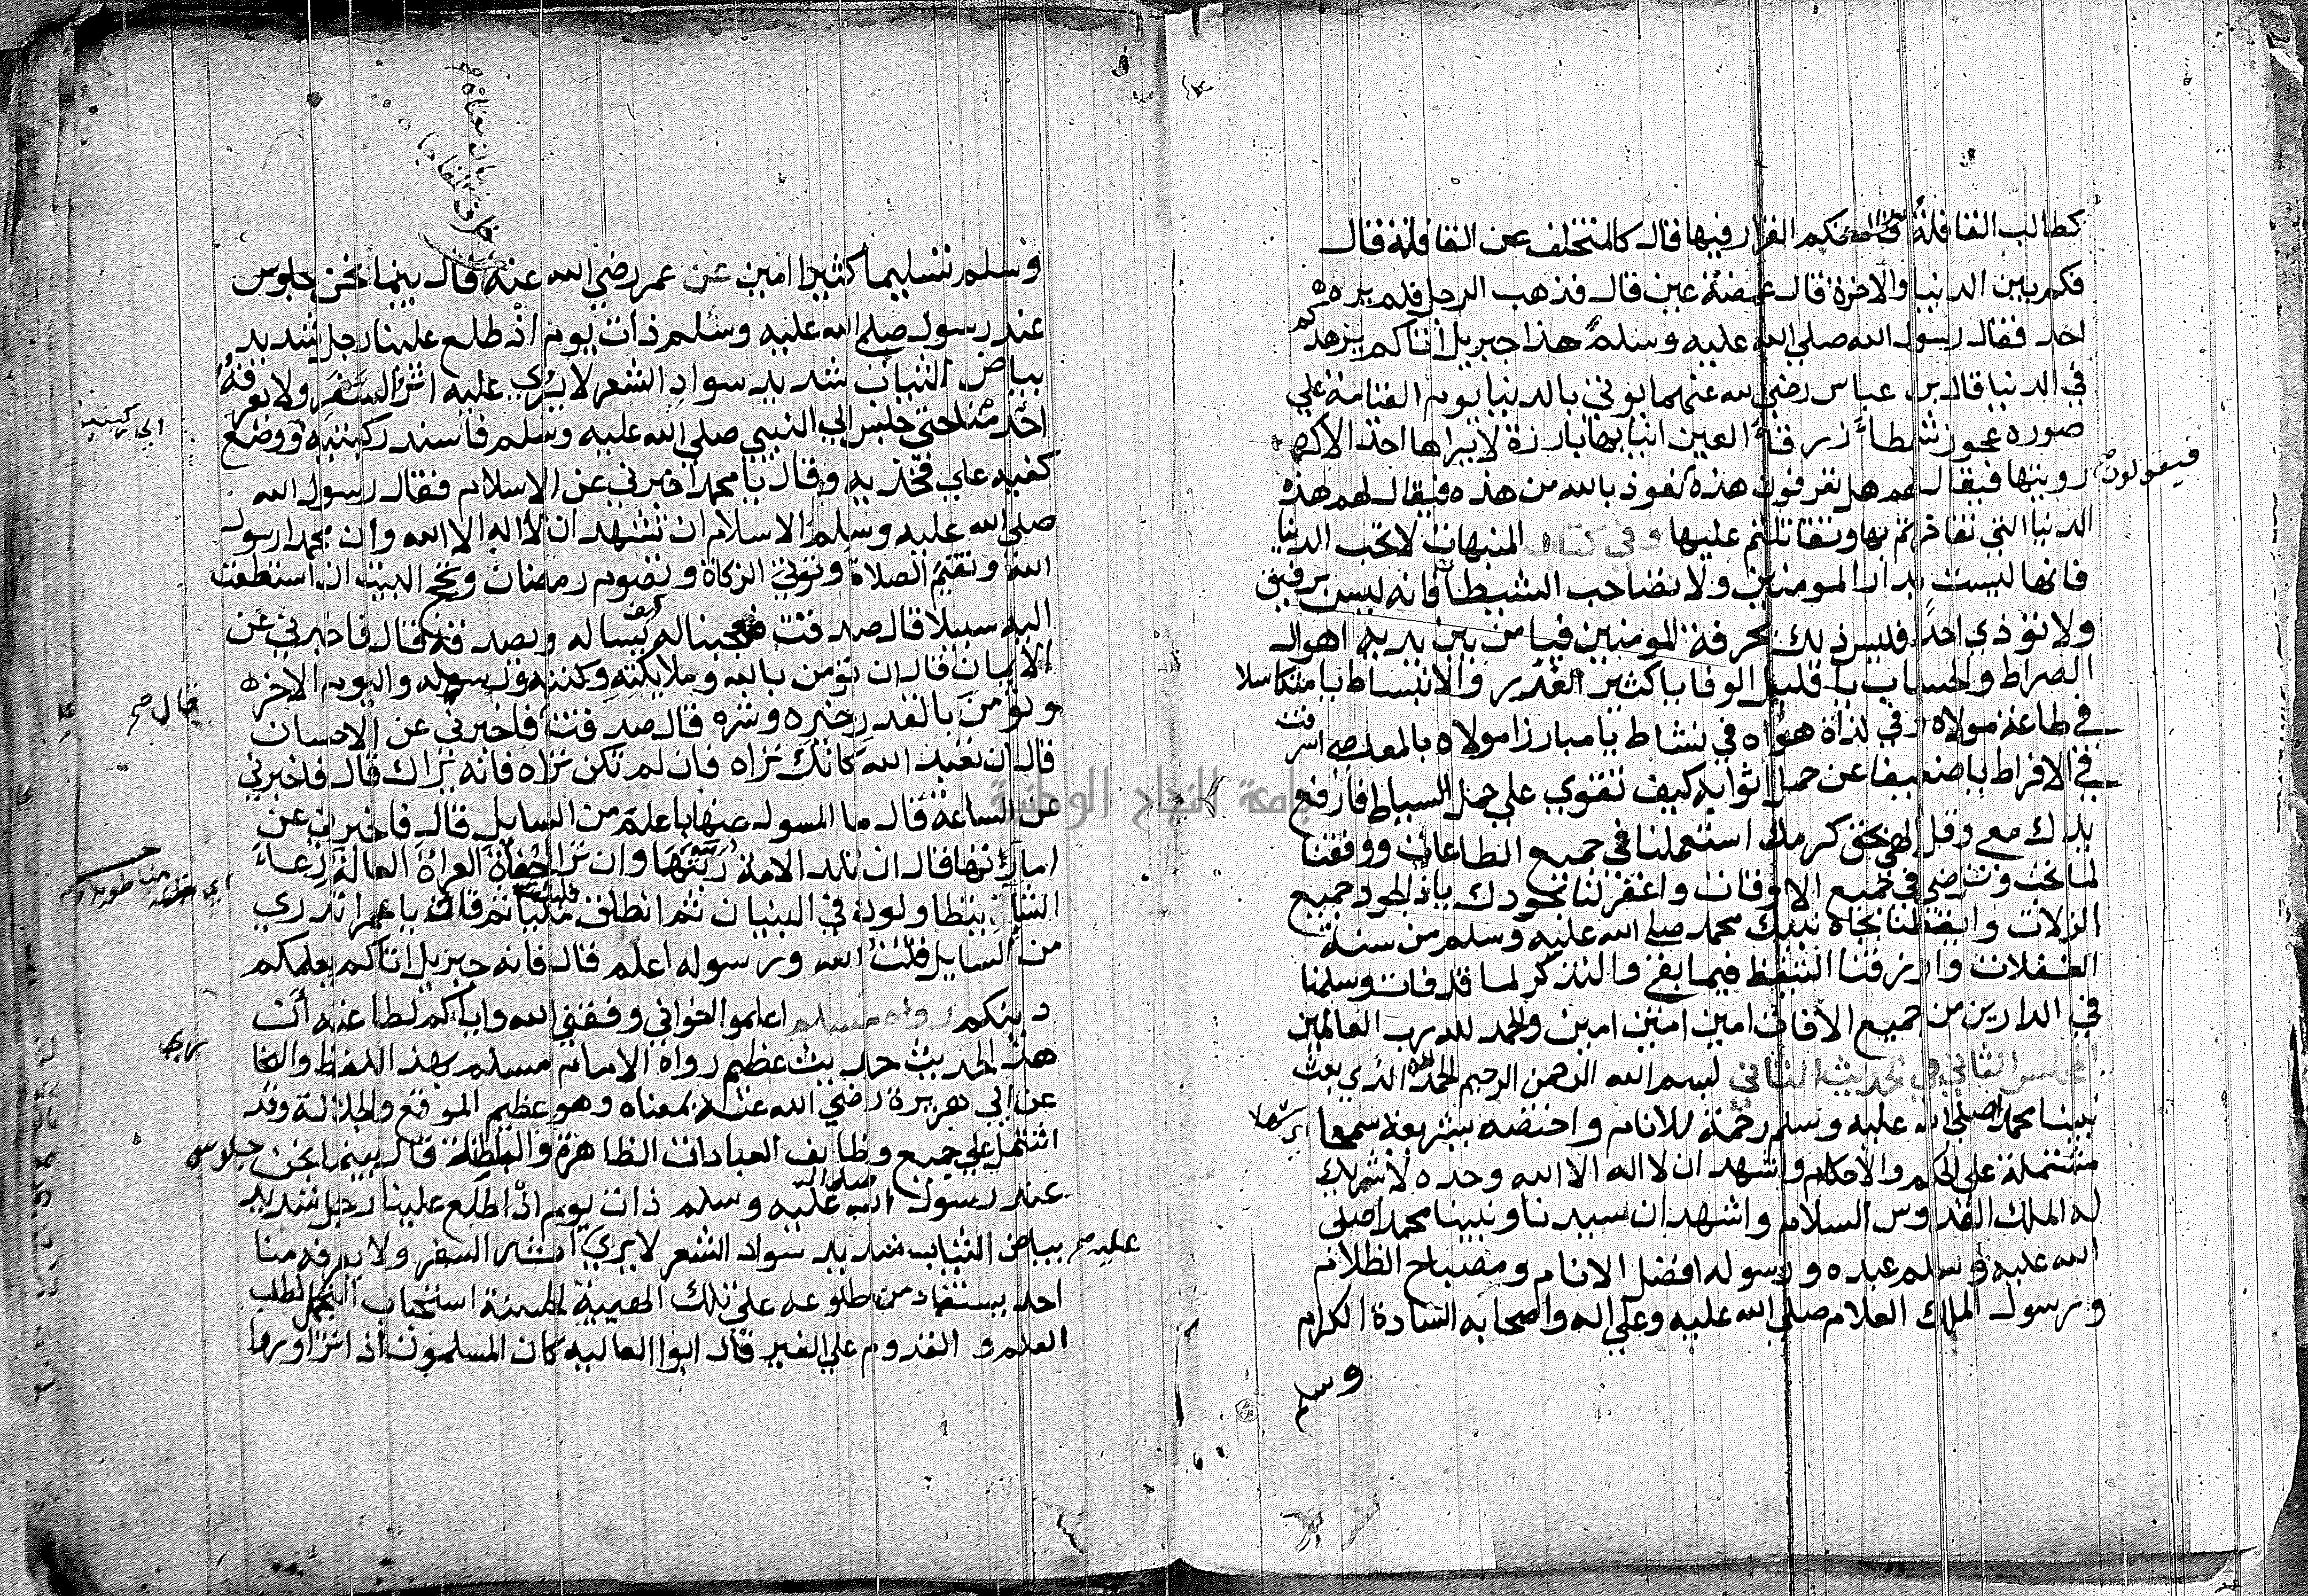 كطالب القافلة قال فكم القرار فيها قال كالمتخلف عن القافلة قال
فكم بين الدنيا والاخرة قال غمضة عين قال فذهب الرجل فلم يره
احد فقال رسول الله صلي الله عليه وسلم هذا جبريل اتاكم يزهدكم
في الدنيا قال بن عباس رضي الله عنهما يوتي بالدنيا يوم القيامة علي
صورة عجوز شمطاء زرقة العين انيابها بارزة لا يراها احد الا كره
رويتها فيقال لهم هل تعرفون هذه فيقولون نعوذ بالله من هذه فيقال لهم هذه
الدنيا التي تفاخرتم بها وتقاتلتم عليها وفي كتاب المنبهات لا تحب الدنيا
فانها ليست بدار المومنين ولا تصاحب الشيطان فانه ليس برفيق
ولا توذي احدا فليس ذلك بحرفة المومنين فيا من بين يديه اهوال
الصراط والحساب يا قليل الوفا يا كثير الغدر والانبساط يا متكاسلا
في طاعة مولاه وفي لذاة هواه في نشاط يا مبارزا مولاه بالمعاصي اسرفت
في الافراط يا ضعيفا عن حمل اثوابه كيف تقوي علي حمل السياط فارفع
يدك معي وقل الهي بحق كرمك استعملنا في جميع الطاعات ووفقنا
لما تحب وترضي في جميع الاوقات واغفر لنا بجودك ياذا الجود جميع
الزلات وايقظنا بجاه نبيك محمد صلي الله عليه وسلم من سنة
الغفلات وارزقنا التيقظ فيما بقي والتذكر لما قد فات وسلمنا
في الدارين من جميع الافات امين امين امين والحمد لله رب العالمين
المجلس الثاني في الحديث الثاني بسم الله الرحمن الرحيم الحمد لله الذي بعث
نبينا محمدا صلي الله عليه وسلم رحمة للانام واختصه بشريعة سمحا
مشتملة علي الحكم والاحكام واشهد ان لا اله الا الله وحده لا شريك
له الملك القدوس السلام واشهد ان سيدنا ونبينا محمدا صلي
الله عليه وسلم عبده ورسوله افضل الانام ومصباح الظلام
ورسول الملك العلام صلي الله عليه وعلي اله واصحابه السادة الكرام
وسلم
وسلم تسليما كثيرا امين عن عمر رضي الله عنه قال بينما نحن جلوس
عند رسول صلي الله عليه وسلم ذات يوم اذ طلع علينا رجل شديد
بياض الثياب شديد سواد الشعر لا يري عليه اثر السفر ولا يعرفه
احد منا حتي جلس الي النبي صلي الله عليه وسلم فاسند ركبتيه ووضع
الي ركبتيه
كفيه علي فخذيه وقال يا محمد اخبرني عن الاسلام فقال رسول الله
صلي الله عليه وسلم الاسلام ان تشهد ان لا اله الا الله وان محمدا رسول
الله وتقيم الصلاة وتوتي الزكاة وتصوم رمضان وتحج البيت ان استطعت
اليه سبيلا قال صدقت فعجبنا له يساله ويصدقه قال فاخبرني عن
الايمان قال ان تومن بالله وملايكته وكتبه ورسوله واليوم الاخره
قال صح
وتومن بالقدر خيره وشره قال صدقت فاخبرني عن الاحسان
قال ان تعبد الله كانك تراه فان لم تكن تراه فانه يراك قال فاخبرني
عن الساعة قال ما المسول عنها باعلم من السايل قال فاخبرني عن
اماراتها قال ان تلد الامة ربتها وان تري الحفاة العراة العالة رعاء
الشاء يتطاولون في البنيان ثم انطلق فلبثت مليا ثم قال يا عمر اتدري
من السايل قلت الله ورسوله اعلم قال فانه جبريل اتاكم يعلمكم
دينكم رواه مسلم اعلموا اخواني وفقني الله واياكم لطاعته ان
هذا الحديث حديث عظيم رواه الامام مسلم بهذا اللفظ والبخاري
عن ابي هريرة رضي الله عنه بمعناه وهو عظيم الموقع والجلالة وقد
اشتمل علي جميع وظايف العبادات الظاهرة والباطنة قال بينما نحن جلوس
عند رسول الله صلي الله عليه وسلم ذات يوم اذ اطلع علينا رجل شديد
بياض الثياب شديد سواد الشعر لا يري عليه اثر السفر ولا يعرفه منا
احد يستفاد من طلوعه علي تلك الهيية الحسنة استحباب التجمل لطلب
العلم والقدوم علي الغير قال ابوا العاليه كان المسلمون اذا تزاوروا
جامعة النجاح الوطنية